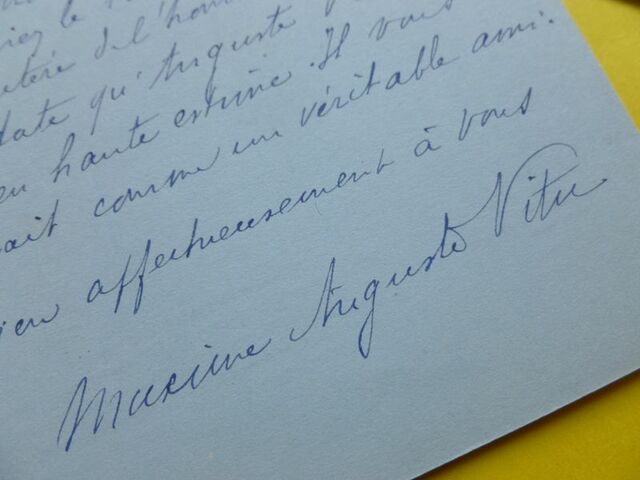 le
de l'hom
date qu'Auguste V
en haute estime. Il vous
ait comme un véritable ami.
ien affectueusement à vous
Maxime Auguste Vitu